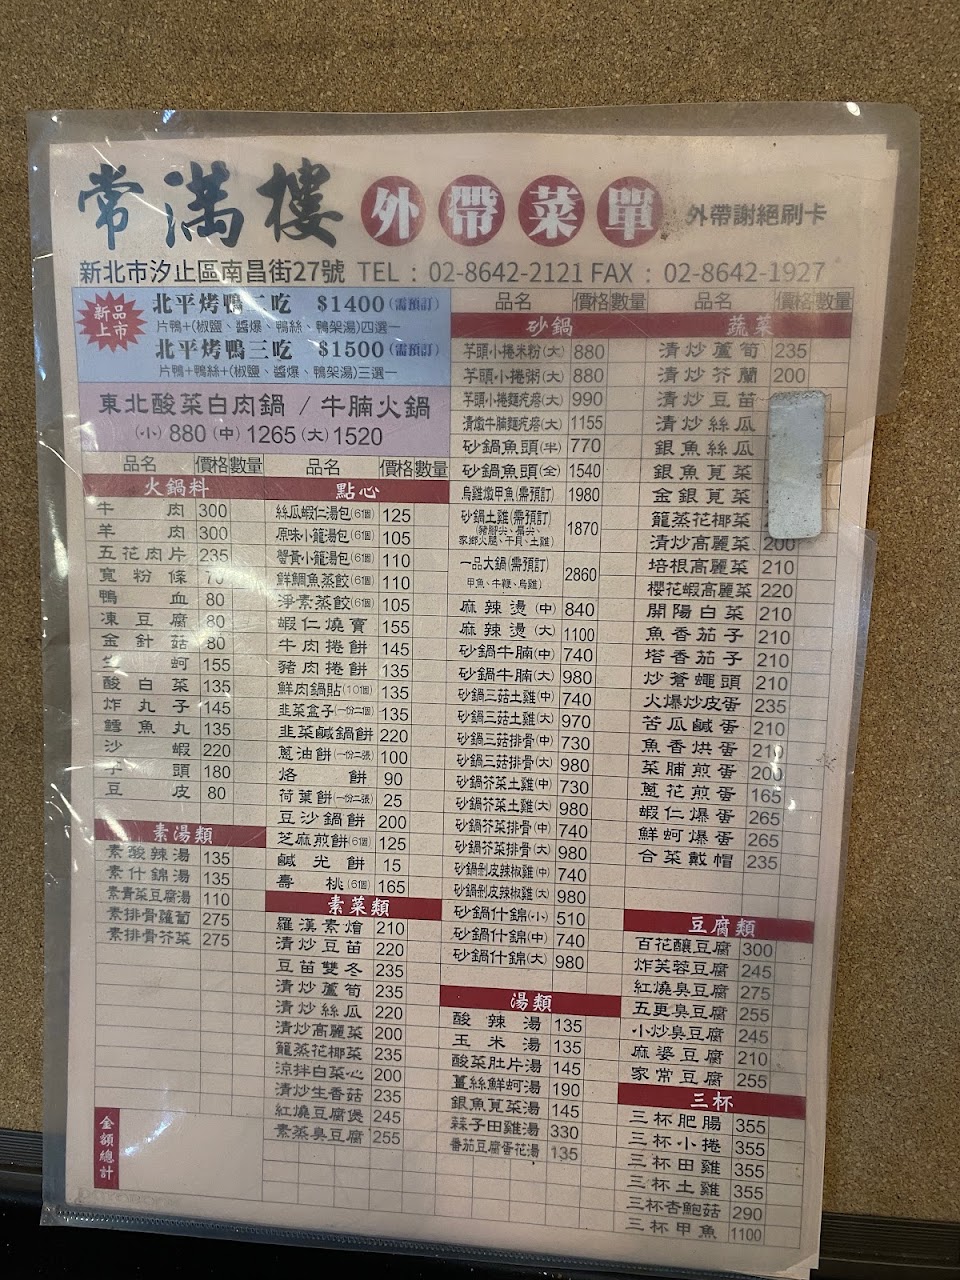 常滿樓 外帶菜單 外帶謝絕刷卡
新北市汐止區南昌街27號 TEL：02-8642-2121 FAX：02-8642-1927
新品上市
北平烤鴨二吃 $1400(需預訂)
片鴨+(椒鹽、醬爆、鴨絲、鴨架湯)四選一
北平烤鴨三吃 $1500(需預訂)
片鴨+鴨絲+(椒鹽、醬爆、鴨架湯)三選一
東北酸菜白肉鍋 / 牛腩火鍋
(小)880(中)1265(大)1520
品名 價格 數量
火鍋料
牛肉 300
羊肉 300
五花肉片 235
寬粉條 70
鴨血 80
凍豆腐 80
金針菇 80
蚵 155
酸白菜 135
炸丸子 145
鱈魚丸 135
沙蝦 220
芋頭 180
豆皮 80
素湯類
素酸辣湯 135
素什錦湯 135
素青菜豆腐湯 110
素排骨蘿蔔 275
素排骨芥菜 275
金額總計
品名 價格 數量
點心
絲瓜蝦仁湯包(6個) 125
原味小籠湯包(6個) 105
蟹黃小籠湯包(6個) 110
鮮鯛魚蒸餃(6個) 110
淨素蒸餃(6個) 105
蝦仁燒賣 155
牛肉捲餅 145
豬肉捲餅 135
鮮肉鍋貼(10個) 135
韭菜盒子(一份二個) 135
韭菜鹹鍋餅 220
蔥油餅(一份二張) 100
烙餅 90
荷葉餅(一份二張) 25
豆沙鍋餅 200
芝麻煎餅(6個) 125
鹹光餅 15
壽桃(6個) 165
素菜類
羅漢素燴 210
清炒豆苗 220
豆苗雙冬 235
清炒蘆筍 235
清炒絲瓜 220
清炒高麗菜 200
籠蒸花椰菜 235
涼拌白菜心 200
清炒生香菇 235
紅燒豆腐煲 245
素蒸臭豆腐 255
品名 價格 數量
砂鍋
芋頭小捲米粉(大) 880
芋頭小捲粥(大) 880
芋頭小捲麵疙瘩(大) 990
清燉牛腩麵疙瘩(大) 1155
砂鍋魚頭(半) 770
砂鍋魚頭(全) 1540
烏雞燉甲魚(需預訂) 1980
砂鍋土雞(需預訂) 1870
家鄉火腿、干貝、土雞)
一品大鍋(需預訂) 2860
甲魚、牛鞭、烏雞)
麻辣燙(中) 840
麻辣燙(大) 1100
砂鍋牛腩(中) 740
砂鍋牛腩(大) 980
砂鍋三菇土雞(中) 740
砂鍋三菇土雞(大) 970
砂鍋三菇排骨(中) 730
砂鍋三菇排骨(大) 980
砂鍋芥菜土雞(中) 730
砂鍋芥菜土雞(大) 980
砂鍋芥菜排骨(中) 740
砂鍋芥菜排骨(大) 980
砂鍋剝皮辣椒雞(中) 740
砂鍋剝皮辣椒雞(大) 980
砂鍋什錦(小) 510
砂鍋什錦(中) 740
砂鍋什錦(大) 980
湯類
酸辣湯 135
玉米湯 135
酸菜肚片湯 145
薑絲鮮蚵湯 190
銀魚莧菜湯 145
蒜子田雞湯 330
番茄豆腐蛋花湯 135
品名 價格 數量
蔬菜
清炒蘆筍 235
清炒芥蘭 200
清炒豆苗
清炒絲瓜
銀魚絲瓜
銀魚莧菜
金銀莧菜
籠蒸花椰菜
清炒高麗菜 200
培根高麗菜 210
櫻花蝦高麗菜 220
開陽白菜 210
魚香茄子 210
塔香茄子 210
炒蒼蠅頭 210
火爆炒皮蛋 235
苦瓜鹹蛋 210
魚香烘蛋 210
菜脯煎蛋 200
蔥花煎蛋 165
蝦仁爆蛋 265
鮮蚵爆蛋 265
合菜戴帽 235
豆腐類
百花釀豆腐 300
炸芙蓉豆腐 245
紅燒臭豆腐 275
五更臭豆腐 255
小炒臭豆腐 245
麻婆豆腐 210
家常豆腐 255
三杯
三杯肥腸 355
三杯小捲 355
三杯田雞 355
三杯土雞 355
三杯杏鮑菇 290
三杯甲魚 1100